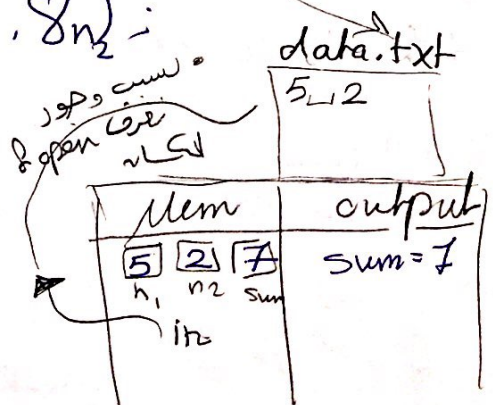 . &n2 ;
data.txt
5␣2
بسبب وجور
open
Mem
output
5 2 7
sum = 7
n1 n2 sum
in